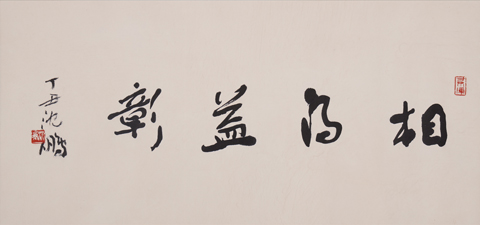 相得益彰
丁丑沈鹏